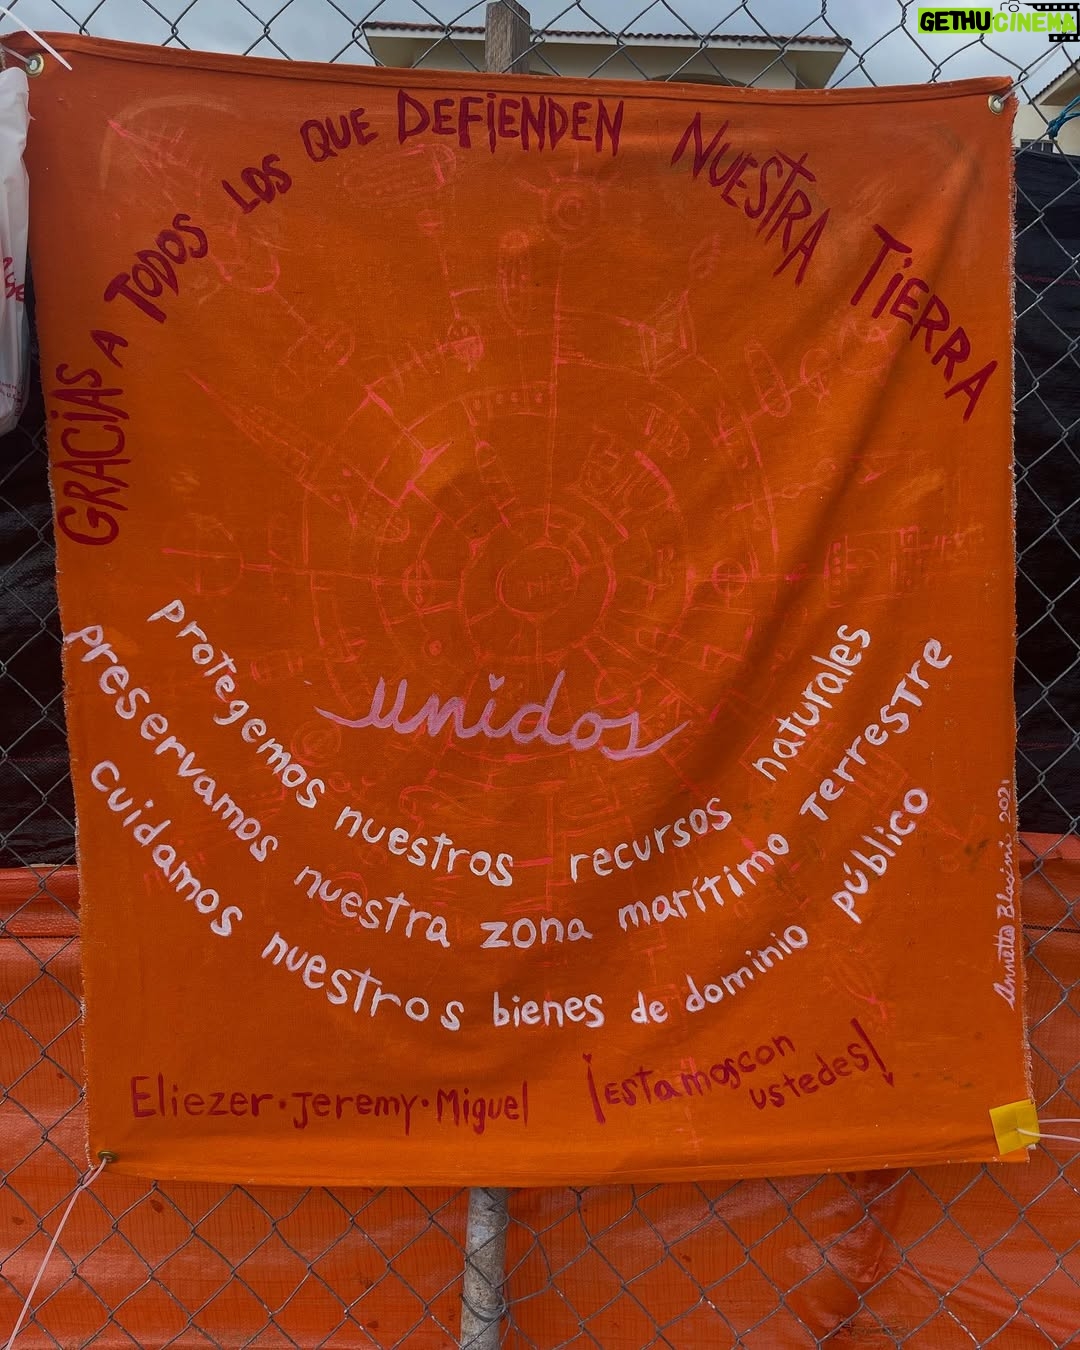 GETHUCINEMA
GRACIAS A TODOS LOS QUE DEFIENDEN NUESTRA TIERRA
unidos
protegemos nuestros recursos naturales
preservamos nuestra zona marítimo terrestre
cuidamos nuestros bienes de dominio público
Eliezer · Jeremy · Miguel
¡estamos con
ustedes!
Annette Blasini 2021